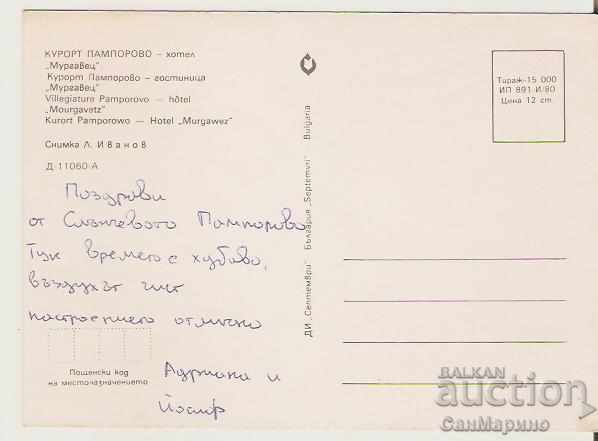 КУРОРТ ПАМПОРОВО – хотел
„Мургавец"
Курорт Пампорово – гостиница
„Мургавец"
Villegiature Pamporovo – hôtel
„Mourgavetz"
Kurort Pamporowo – Hotel „Murgawez"
Снимка Л. Иванов
Д-11060-А
Поздрави
от Слънчевото Пампорово
Тук времето е хубаво,
въздухът чист
настроението отлично
Адриана и
Йосиф
Пощенски код
на местоназначението
ДИ „Септември" България „Septemvri" Bulgaria
Тираж-15 000
ИП 891 И/80
Цена 12 ст.
BALKAN
auction
СанМарино